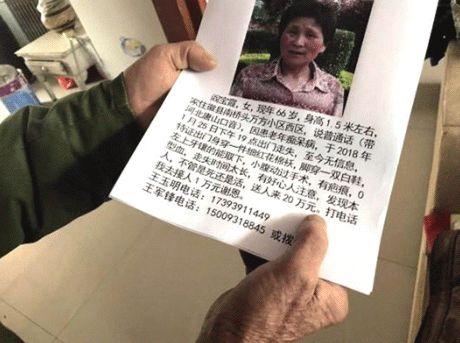 阎宝霞,女,现年66岁,身高1.5米左右,
家住徽县南桥头万方小区西区,说普通话(带
河北唐山口音),因患老年痴呆病,于2018年
1月25日下午19点出门走失,至今无信息,
特征出门身穿一件细红花棉袄,脚穿一双白鞋,
左上牙镶的能取下,小腹动过手术,有疤痕,O
型血,走失时间太长,有好心人注意,发现本
人,不管是死还是活,送人来20万元。打电话
去接人1万元谢恩。
王玉明电话:17393911449
王军锋电话:15009318845 或拨